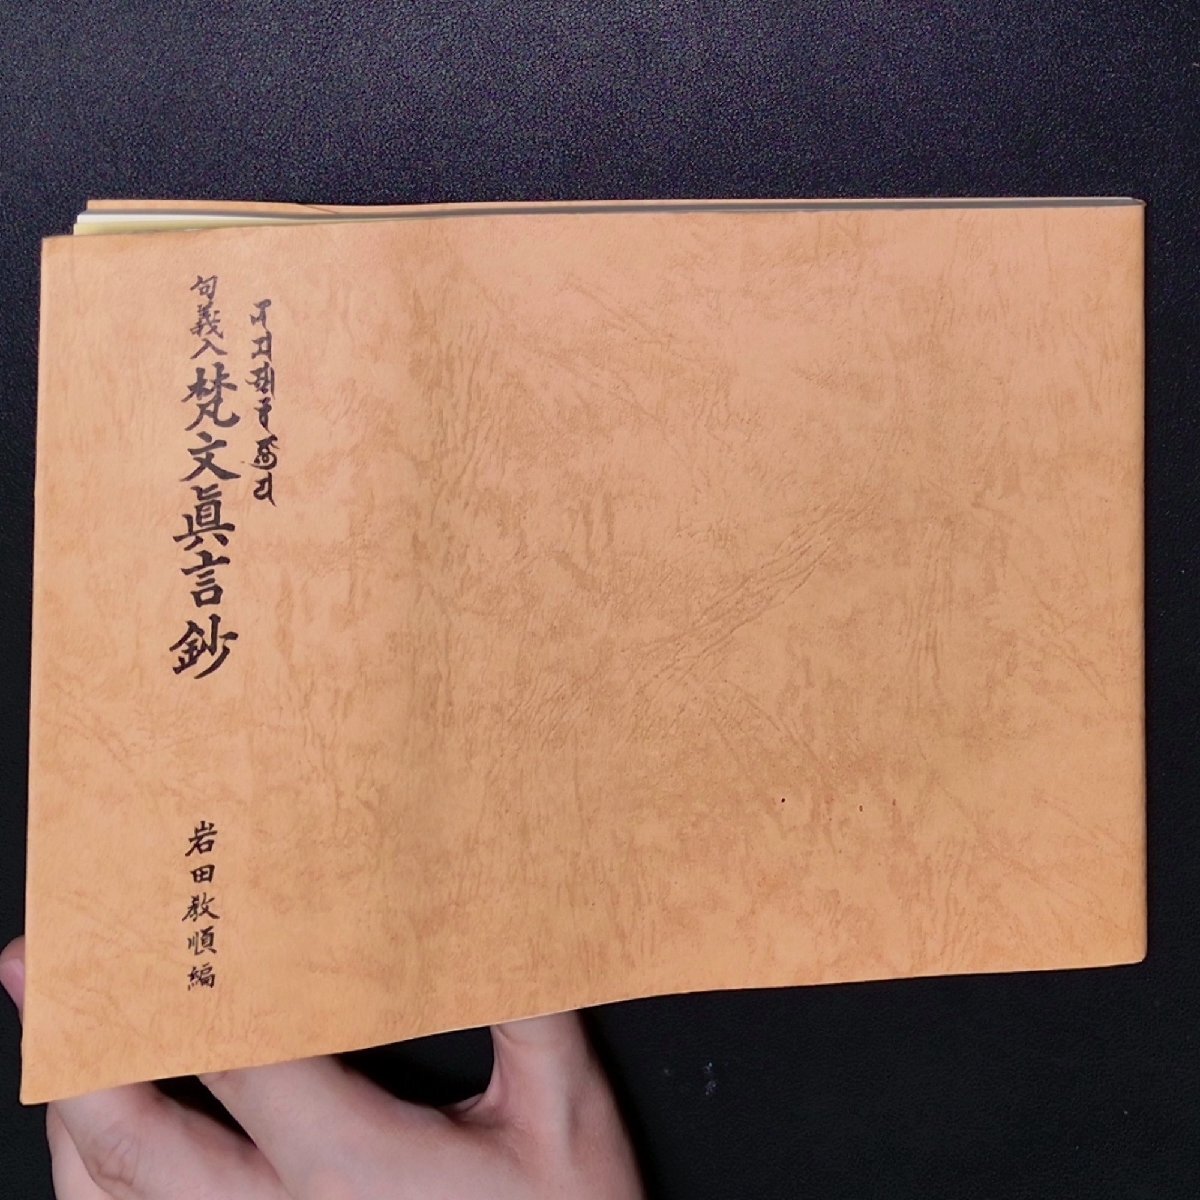 句義入梵文眞言鈔
岩田教順編